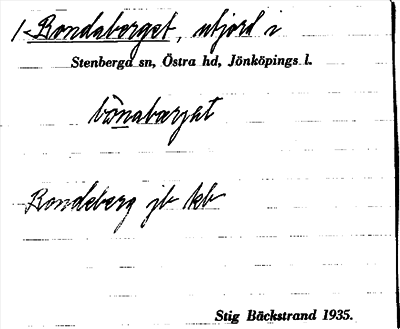 1 Bondaberget, utjord i
Stenberga sn, Östra hd, Jönköpings l.
bònabærjət
Bondeberg jb kb
Stig Bäckstrand 1935.